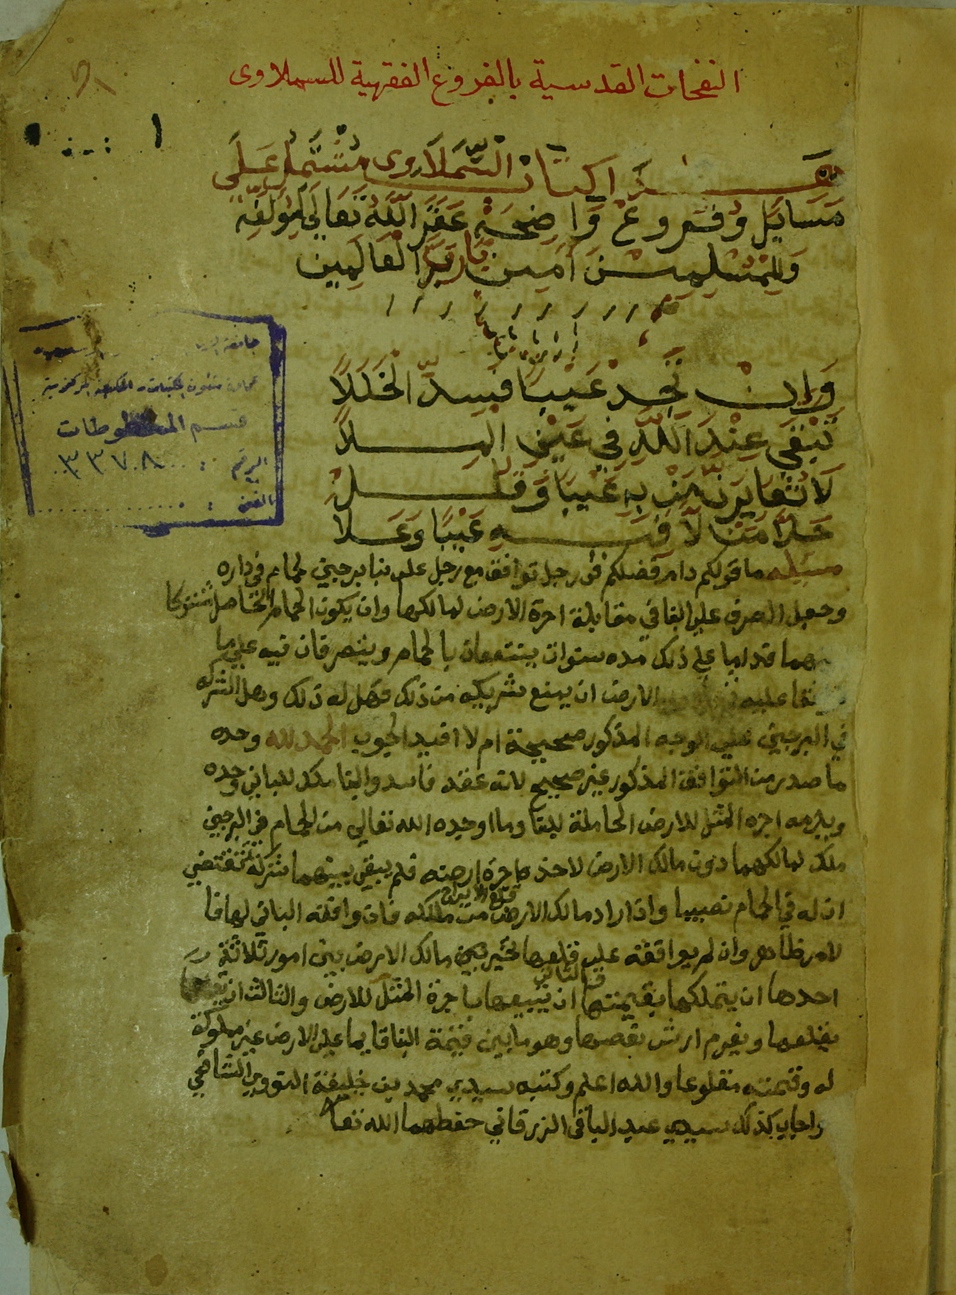 النفحات القدسية بالفروع الفقهية للسملاوى
هذا كتاب السملاوى مشتمل على
مسايل وفروع واضحة غفر الله تعالى لمؤلفه
وللمسلمين امين يارب العالمين
وان تجد عيبا فسد الخللا
تبقى عند الله في عين الملا
لا تعايرن من به عيبا وقل
جل من لا فيه عيبا وعلا
مسئلة ما قولكم دام فضلكم في رجل توافق مع رجل على بنا برجين لحمام في داره
وجعل الصرف على الباني مقابلة اجرة الارض لمالكها وان يكون الحمام الحاصل مشتركا
بينهما فداما على ذلك مده سنوات ينتفعان بالحمام ويتصرفان فيه على ما
الارض ان يمنع شريكه من ذلك فهل له ذلك وهل الشركه
في البرجين على الوجه المذكور صحيحة ام لا افيدوا الجواب الحمد لله وحده
ما صدر من التوافق المذكور غير صحيح لانه عقد فاسد والبنا ملك للباني وحده
ويلزمه اجرة المثل للارض الحاملة للبنا وما اوجده الله تعالى من الحمام في البرجين
ملك لمالكهما دون مالك الارض لاخذه اجرة ارضه فلم يبقى بينهما شركة تقتضي
ان له في الحمام نصيبا واذا اراد مالك الارض قلع الابراج من ملكه فان وافقه الباني لها فا
لامر ظاهر وان لم يوافقه على قلعها تخير مالك الارض بين امور ثلاثة
احدها ان يتملكها بقيمتها الثاني ان يبقيها باجرة المثل للارض والثالث ان
يقلعها ويغرم ارش نقصها وهو ما بين قيمة البنا قايما على الارض غير مملوكة
له وقيمته مقلوعا والله اعلم وكتبه سيدي محمد بن خليفة الشافعي
واجاب كذلك سيدي عبد الباقي الزرقاني حفظهما الله تعالى
قسم المخطوطات
الرقم : ٣٣٧٠٨
الفن :